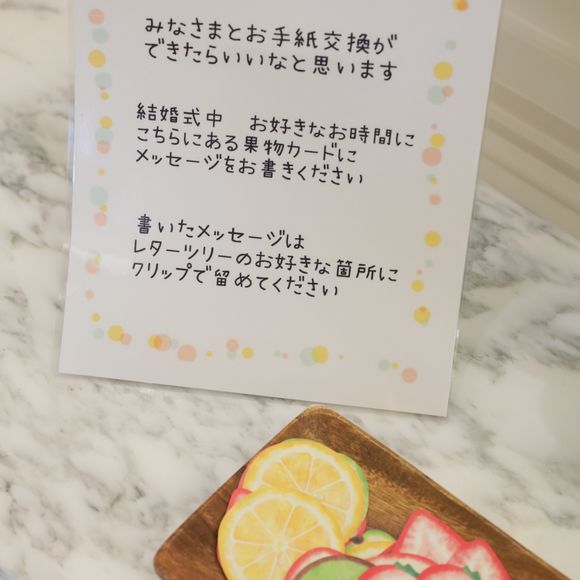 みなさまとお手紙交換が
できたらいいなと思います
結婚式中　お好きなお時間に
こちらにある果物カードに
メッセージをお書きください
書いたメッセージは
レターツリーのお好きな箇所に
クリップで留めてください